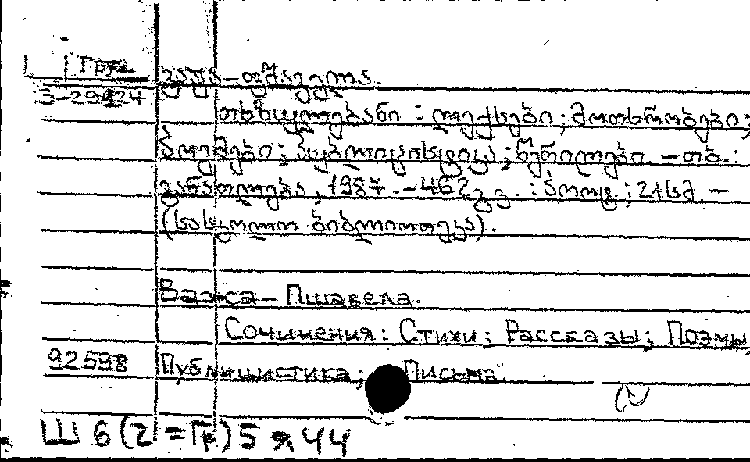 Груз
3-29424 ვაჟა-ფშაველა.
თხზულებანი : ლექსები ; მოთხრობები ;
პოემები ; პუბლიცისტიკა ; წერილები. – თბ. :
განათლება, 1987. – 462გვ. : პორტ ; 21სმ. –
(სასკოლო ბიბლიოთეკა).
Важа – Пшавела.
Сочинения : Стихи ; Рассказы ; Поэмы
92598 Публицистика ; Письма.
Ш 6 (2 = Гр) 5 я 44